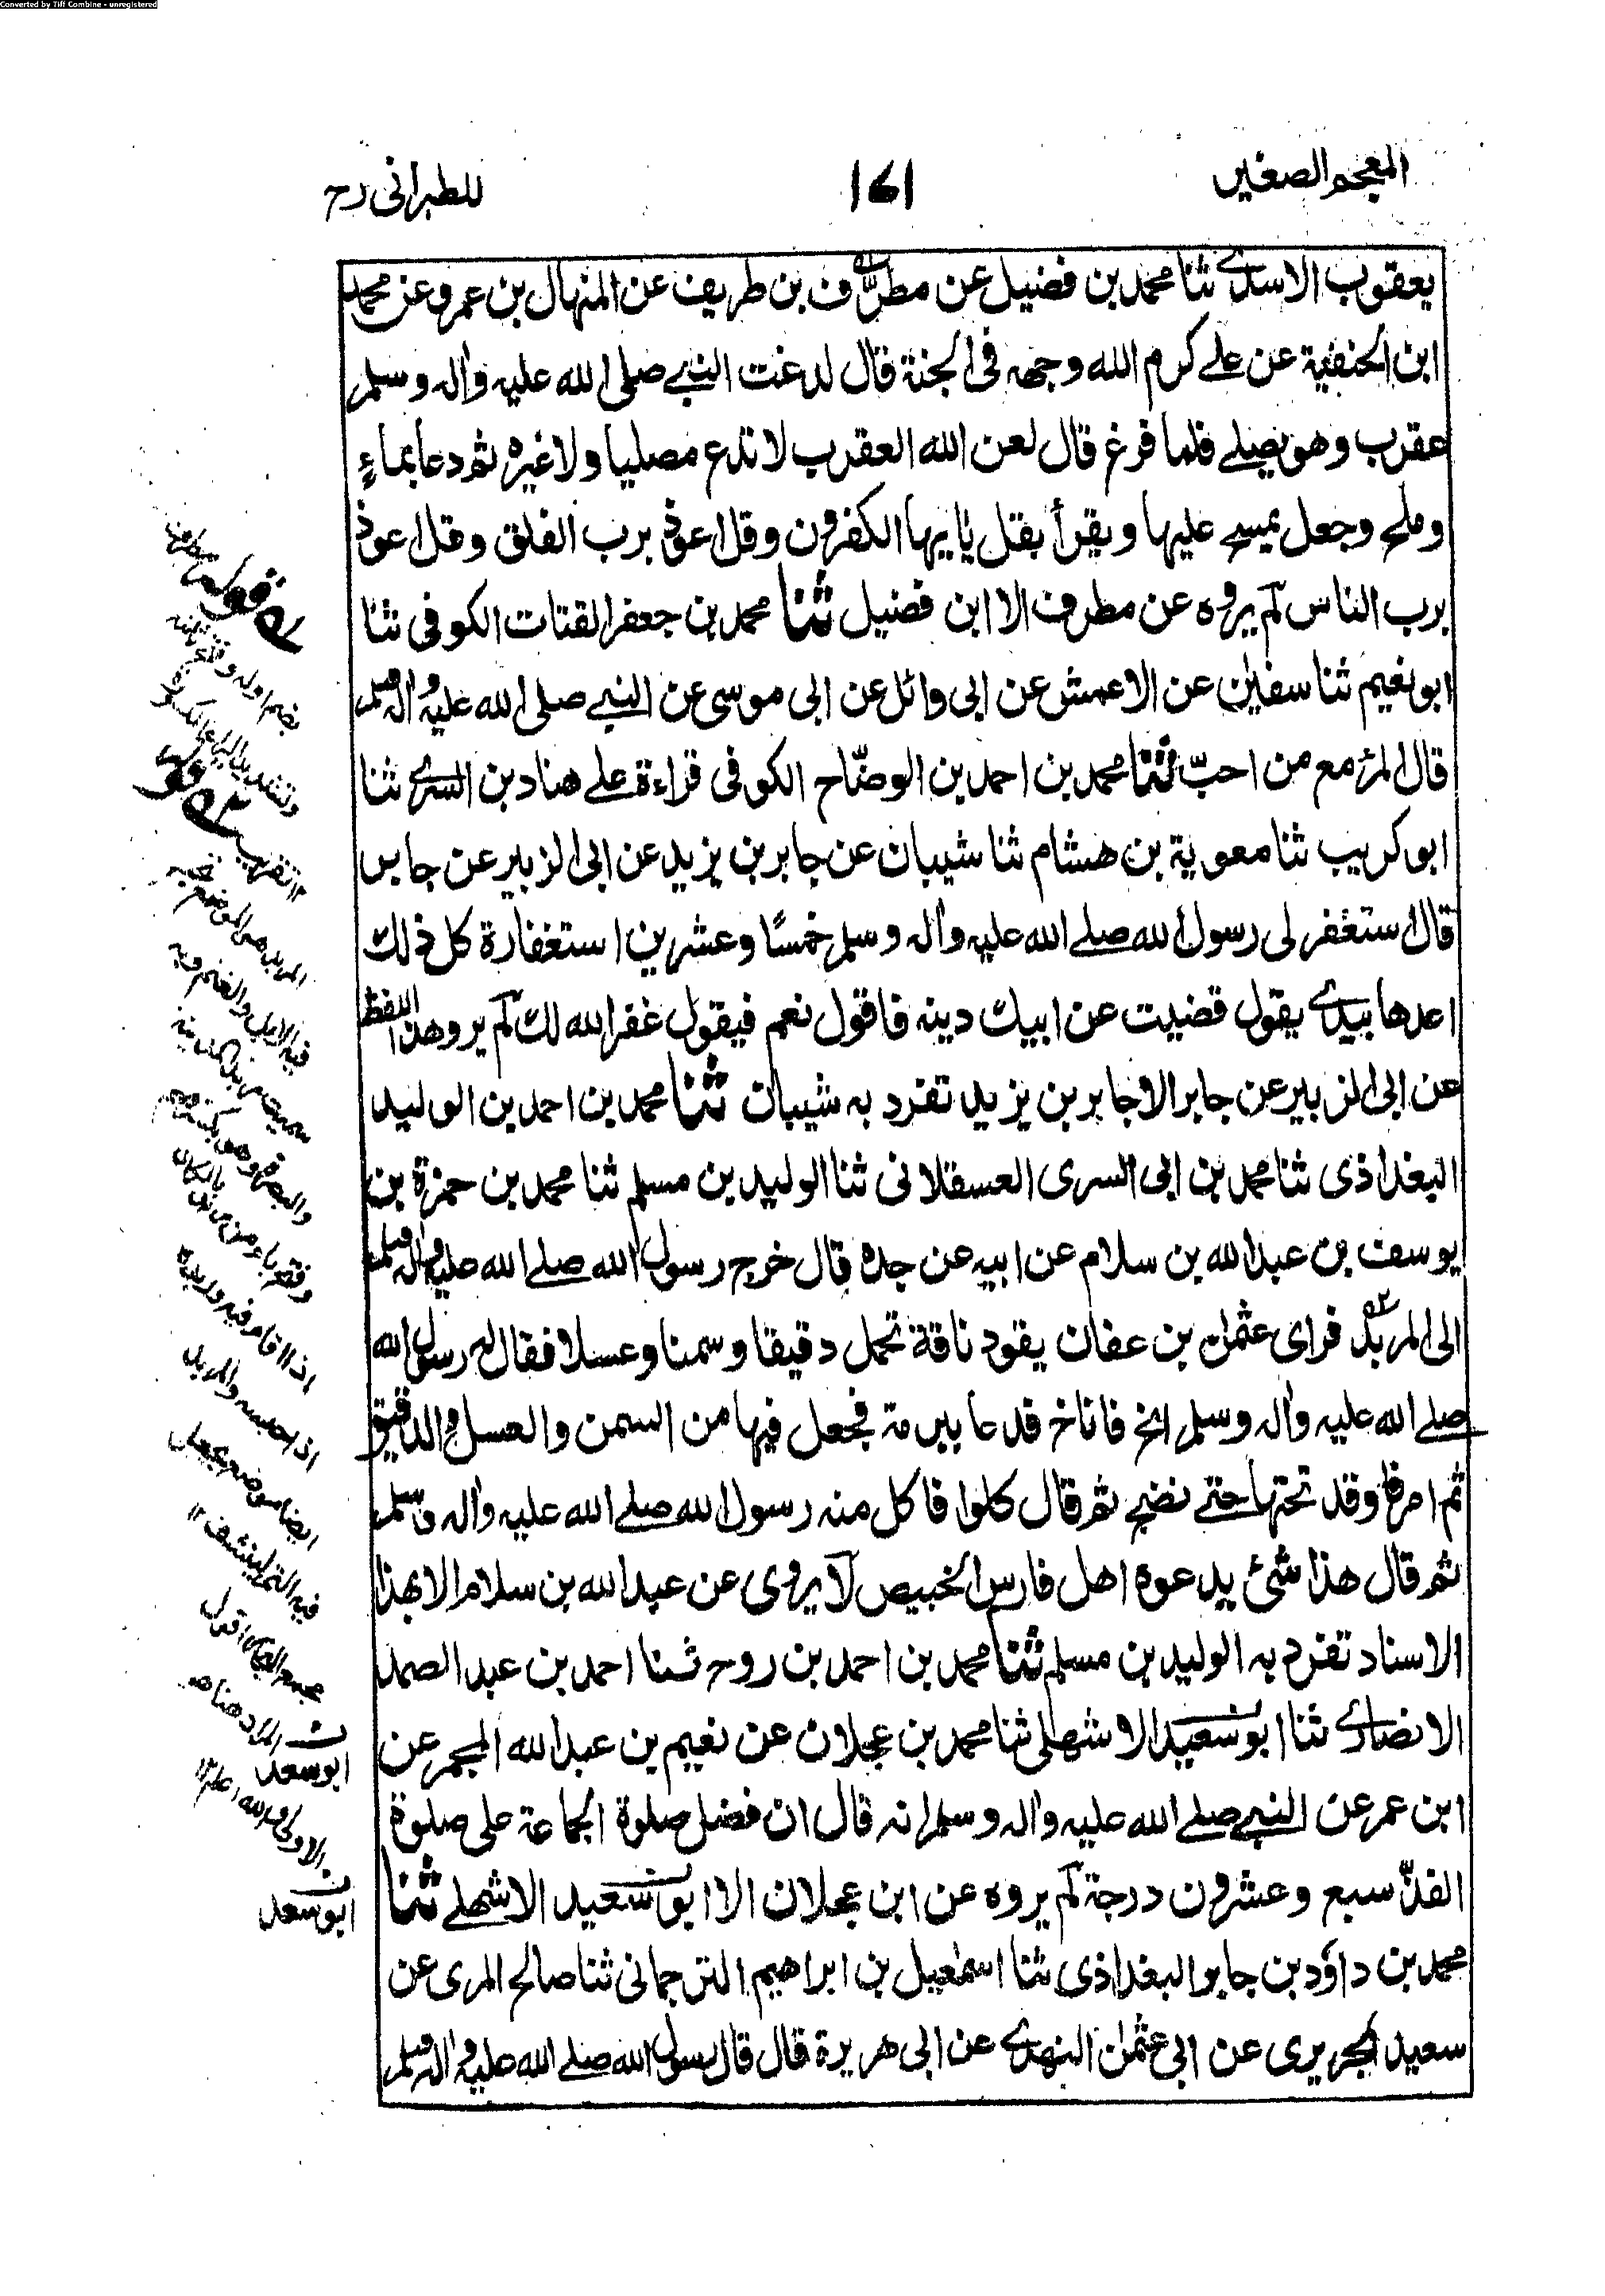 Converted by Tiff Combine - unregistered
المعجم الصغير
١٧١
للطبرانى رح
يعقوب الاسدے ثنا محمد بن فضيل عن مطرف بن طريف عن المنهال بن عمرو عن محمد
ابن الحنفية عن علے كرم الله وجهه فى الجنة قال لدغت النبے صلى الله عليه واله وسلم
عقرب وهو يصلے فلما فرغ قال لعن الله العقرب لا تدع مصليا ولا غيره ثم دعا بماءٍ
وملح وجعل يمسح عليها ويقرأ بقل يايها الكفرون وقل اعوذ برب الفلق وقل اعوذ
برب الناس لم يروه عن مطرف الا ابن فضيل ثنا محمد بن جعفر القتات الكوفى ثنا
ابو نعيم ثنا سفين عن الاعمش عن ابى وائل عن ابى موسى عن النبے صلى الله عليه واله وسلم
قال المرٔ مع من احبّ ثنا محمد بن احمد بن الوضّاح الكوفى قراءة علے هناد بن السرے ثنا
ابو كريب ثنا معوية بن هشام ثنا شيبان عن جابر بن يزيد عن ابى الزبير عن جابر
قال استغفر لى رسول الله صلے الله عليه واله وسلم خمسًا وعشرين استغفارة كل ذلك
اعدها بيدے يقول قضيت عن ابيك دينه فاقول نعم فيقول غفر الله لك لم يرو هذا اللفظ
عن ابى الزبير عن جابر الا جابر بن يزيد تفرد به شيبان ثنا محمد بن احمد بن الوليد
البغداذى ثنا محمد بن ابى السرى العسقلانى ثنا الوليد بن مسلم ثنا محمد بن حمزة بن
يوسف بن عبد الله بن سلام عن ابيه عن جده قال خرج رسول الله صلے الله عليه واله وسلم
الى المربد فراى عثمٰن بن عفان يقود ناقة تحمل دقيقا وسمنا وعسلا فقال له رسول الله
صلے الله عليه واله وسلم انخ فاناخ فدعا ببرمة فجعل فيها من السمن والعسل والدقيق
ثم امر فاوقد تحتها حتے نضج ثم قال كلوا فاكل منه رسول الله صلے الله عليه واله وسلم
ثم قال هذا شئ يدعوه اهل فارس الخبيص لا يروى عن عبد الله بن سلام الا بهذا
الاسناد تفرد به الوليد بن مسلم ثنا محمد بن احمد بن روح ثنا احمد بن عبد الصمد
الانصارے ثنا ابو سعيد الاشهلى ثنا محمد بن عجلان عن نعيم بن عبد الله المجمر عن
ابن عمر عن النبے صلے الله عليه واله وسلم انه قال ان فضل صلوة الجماعة على صلوة
الفذّ سبع وعشرون درجة لم يروه عن ابن عجلان الا ابو سعيد الاشهلے ثنا
محمد بن داؤد بن جابر البغداذى ثنا اسمٰعيل بن ابراهيم الترجمانى ثنا صالح المرى عن
سعيد الجريرى عن ابى عثمٰن النهدے عن ابى هريرة قال قال رسول الله صلے الله عليه واله وسلم
قوله مطرف
بضم اوله وفتح ثانيه
وتشديد الراء المكسورة
١٢ تقريب قوله
المربد هو الموضع
فيه الابل والغنم وبه
سمى مربد المدينة
والبصرة وهو بكسر ميم
وفتح باء من ربد بالمكان
اذا اقام فيه وربده
اذا حبسه والمربد
ايضا موضع يجعل
فيه التمر لينشف ١٢
مجمع البحار اقول
المراد هنا هو
الاول والله اعلم ١٢
ابو سعد
ابو سعد